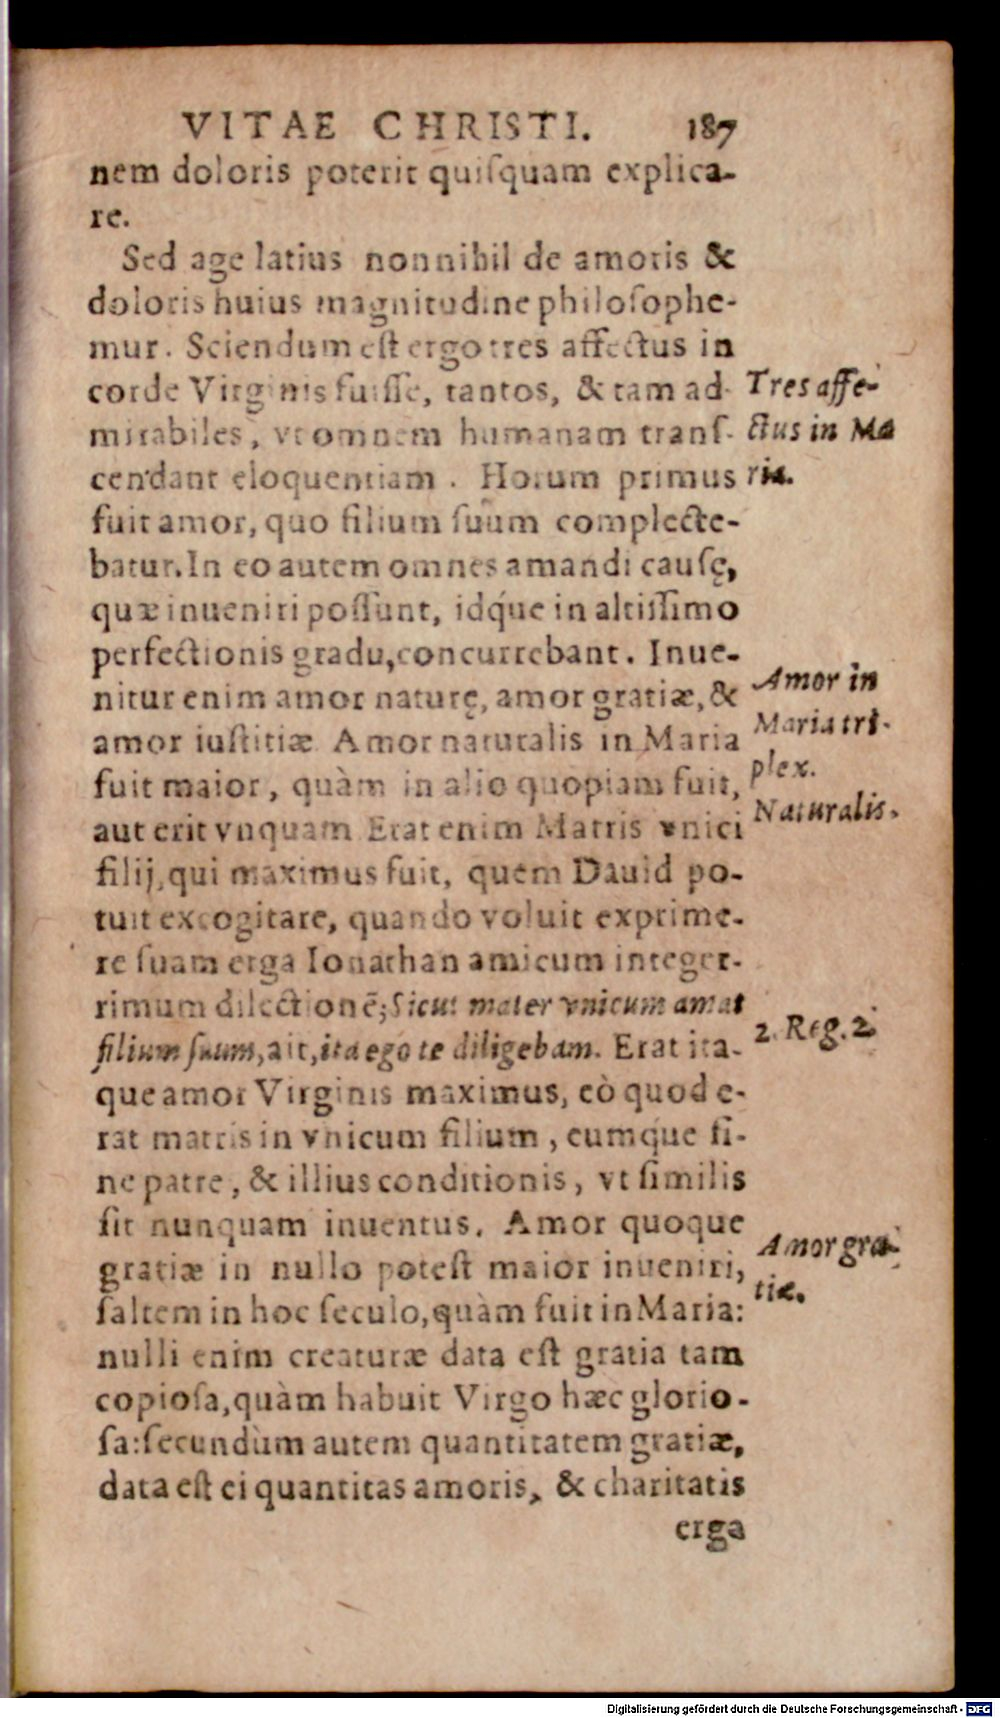 VITAE CHRISTI. 187
nem doloris poterit quiſquam explica-
re.
Sed age latius nonnihil de amoris &
doloris huius magnitudine philoſophe-
mur. Sciendum eſt ergo tres affectus in
corde Virginis fuiſſe, tantos, & tam ad-
mirabiles, vt omnem humanam tranſ-
cendant eloquentiam. Horum primus
fuit amor, quo filium ſuum complecte-
batur. In eo autem omnes amandi cauſę,
quæ inueniri poſſunt, idq́ue in altiſſimo
perfectionis gradu, concurrebant. Inue-
nitur enim amor naturę, amor gratiæ, &
amor iuſtitiæ Amor naturalis in Maria
fuit maior, quàm in alio quopiam fuit,
aut erit vnquam Erat enim Matris vnici
filij, qui maximus fuit, quem Dauid po-
tuit excogitare, quando voluit exprime-
re ſuam erga Ionathan amicum integer-
rimum dilectionē; Sicut mater vnicum amat
filium ſuum, ait, ita ego te diligebam. Erat ita-
que amor Virginis maximus, eò quod e-
rat matris in vnicum filium, eumq́ue ſi-
ne patre, & illius conditionis, vt ſimilis
ſit nunquam inuentus. Amor quoque
gratiæ in nullo poteſt maior inueniri,
ſaltem in hoc ſeculo, quàm fuit in Maria:
nulli enim creaturæ data eſt gratia tam
copioſa, quàm habuit Virgo hæc glorio-
ſa: ſecundùm autem quantitatem gratiæ,
data eſt ei quantitas amoris, & charitatis
erga
Tres affe-
ctus in Ma
ria.
Amor in
Maria tri-
plex.
Naturalis.
2. Reg. 2.
Amor gra-
tiæ.
Digitalisierung gefördert durch die Deutsche Forschungsgemeinschaft - DFG